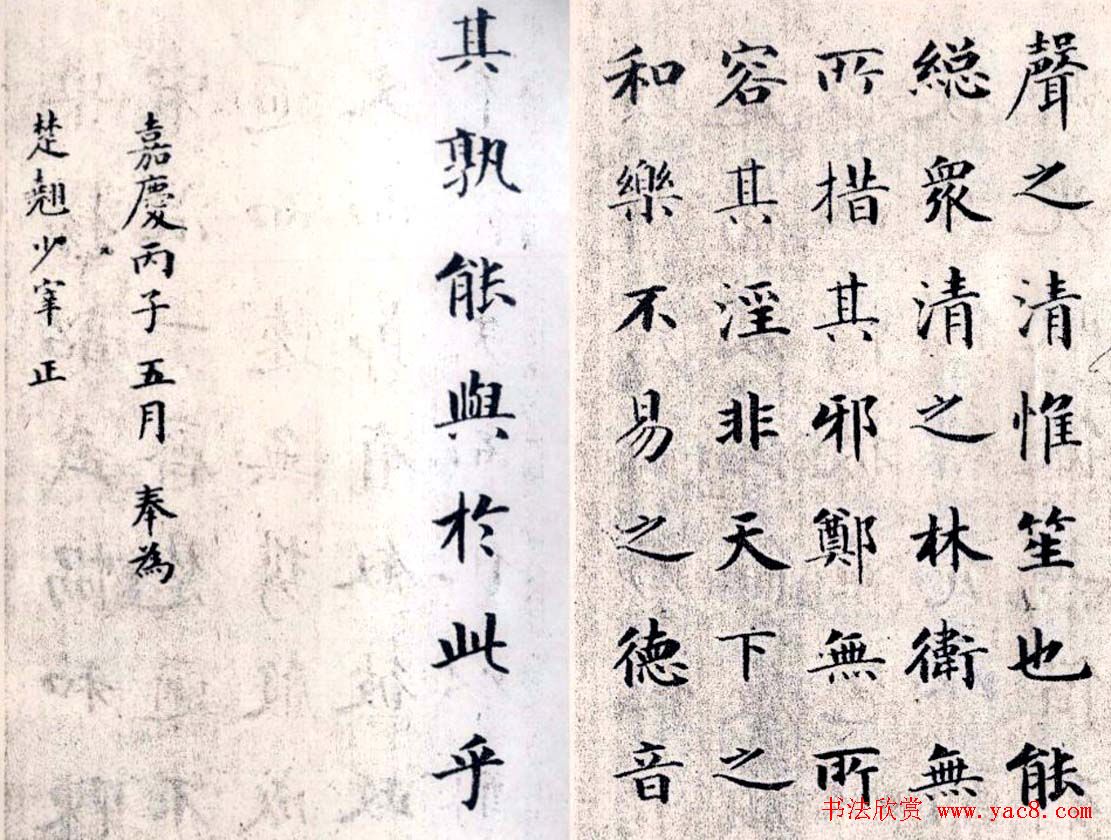 聲之清惟笙也能
総衆清之林衛無
所措其邪鄭無所
容其淫非天下之
和樂不易之德音
其孰能與於此乎
嘉慶丙子五月奉為
楚翹少宰正
书法欣赏 www.yac8.com